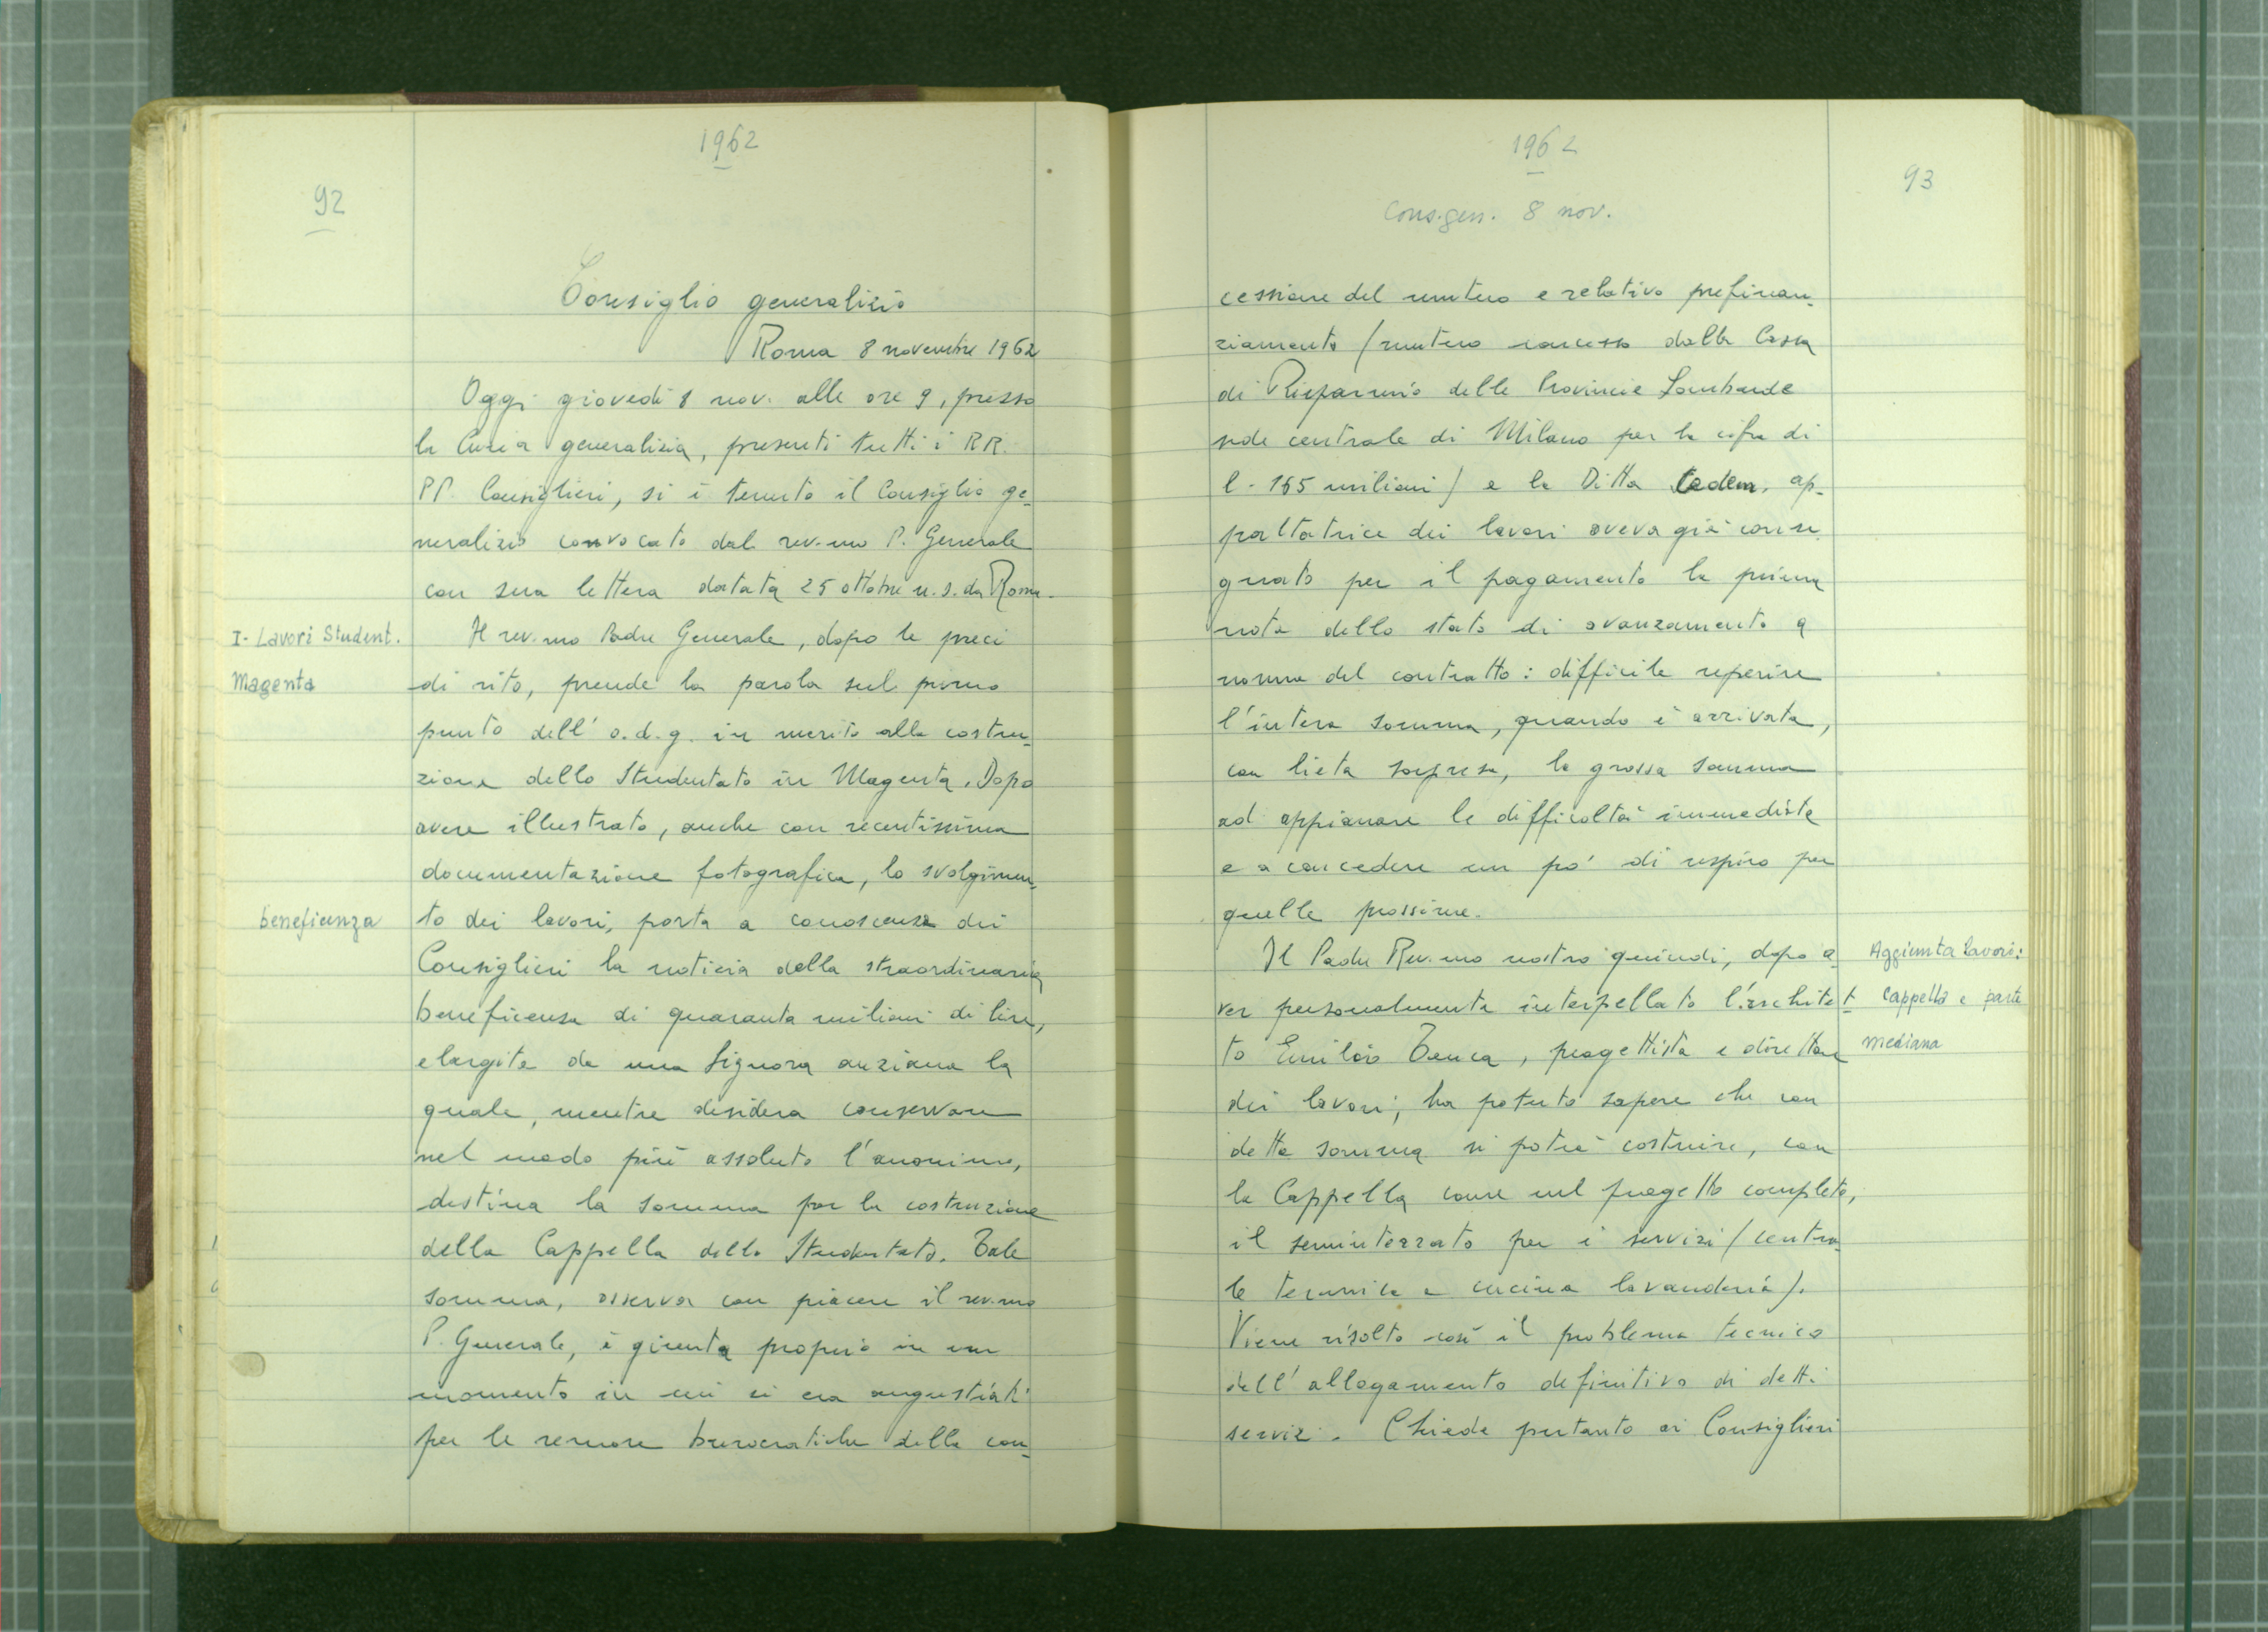 1962
92
Consiglio generalizio
Roma 8 novembre 1962
Oggi giovedì 8 nov. alle ore 9, presso
la Curia generalizia, presenti tutti i RR.
PP. Consiglieri, si è tenuto il Consiglio ge-
neralizio convocato dal rev.mo P. Generale
con sua lettera datata 25 ottobre u.s. da Roma.
I- Lavori Student.
Magenta
Il rev.mo Padre Generale, dopo le preci
di rito, prende la parola sul primo
punto dell'o.d.g. in merito alla costru-
zione dello Studentato in Magenta. Dopo
avere illustrato, anche con recentissima
documentazione fotografica, lo svolgimen-
beneficenza
to dei lavori, porta a conoscenza dei
Consiglieri la notizia della straordinaria
beneficenza di quaranta milioni di lire,
elargita da una Signora anziana la
quale, mentre desidera conservare
nel modo più assoluto l'anonimo,
destina la somma per la costruzione
della Cappella dello Studentato. Tale
somma, osserva con piacere il rev.mo
P. Generale, è giunta proprio in un
momento in cui si era angustiati
per le remore burocratiche della con-
1962
93
Cons. gen. 8 nov.
cessione del mutuo e relativo prefinan-
ziamento (mutuo concesso dalla Cassa
di Risparmio delle Provincie Lombarde
sede centrale di Milano per la cifra di
l. 165 milioni) e la Ditta Cadem, ap-
paltatrice dei lavori aveva già conse-
gnato per il pagamento la prima
nota dello stato di avanzamento a
norma del contratto: difficile reperire
l'intera somma, quando è arrivata,
con lieta sorpresa, la grossa somma
ad appianare le difficoltà immediate
e a concedere un po' di respiro per
quelle prossime.
Aggiunta lavori:
cappella e parte
mediana
Il Padre Rev.mo nostro quindi, dopo a-
ver personalmente interpellato l'architet-
to Emilio Tenca, progettista e direttore
dei lavori, ha potuto sapere che con
detta somma si potrà costruire, con
la Cappella come nel progetto completo,
il seminterrato per i servizi (centra-
le termica e cucina lavanderia).
Viene risolto così il problema tecnico
dell'allogamento definitivo di detti
servizi. Chiede pertanto ai Consiglieri